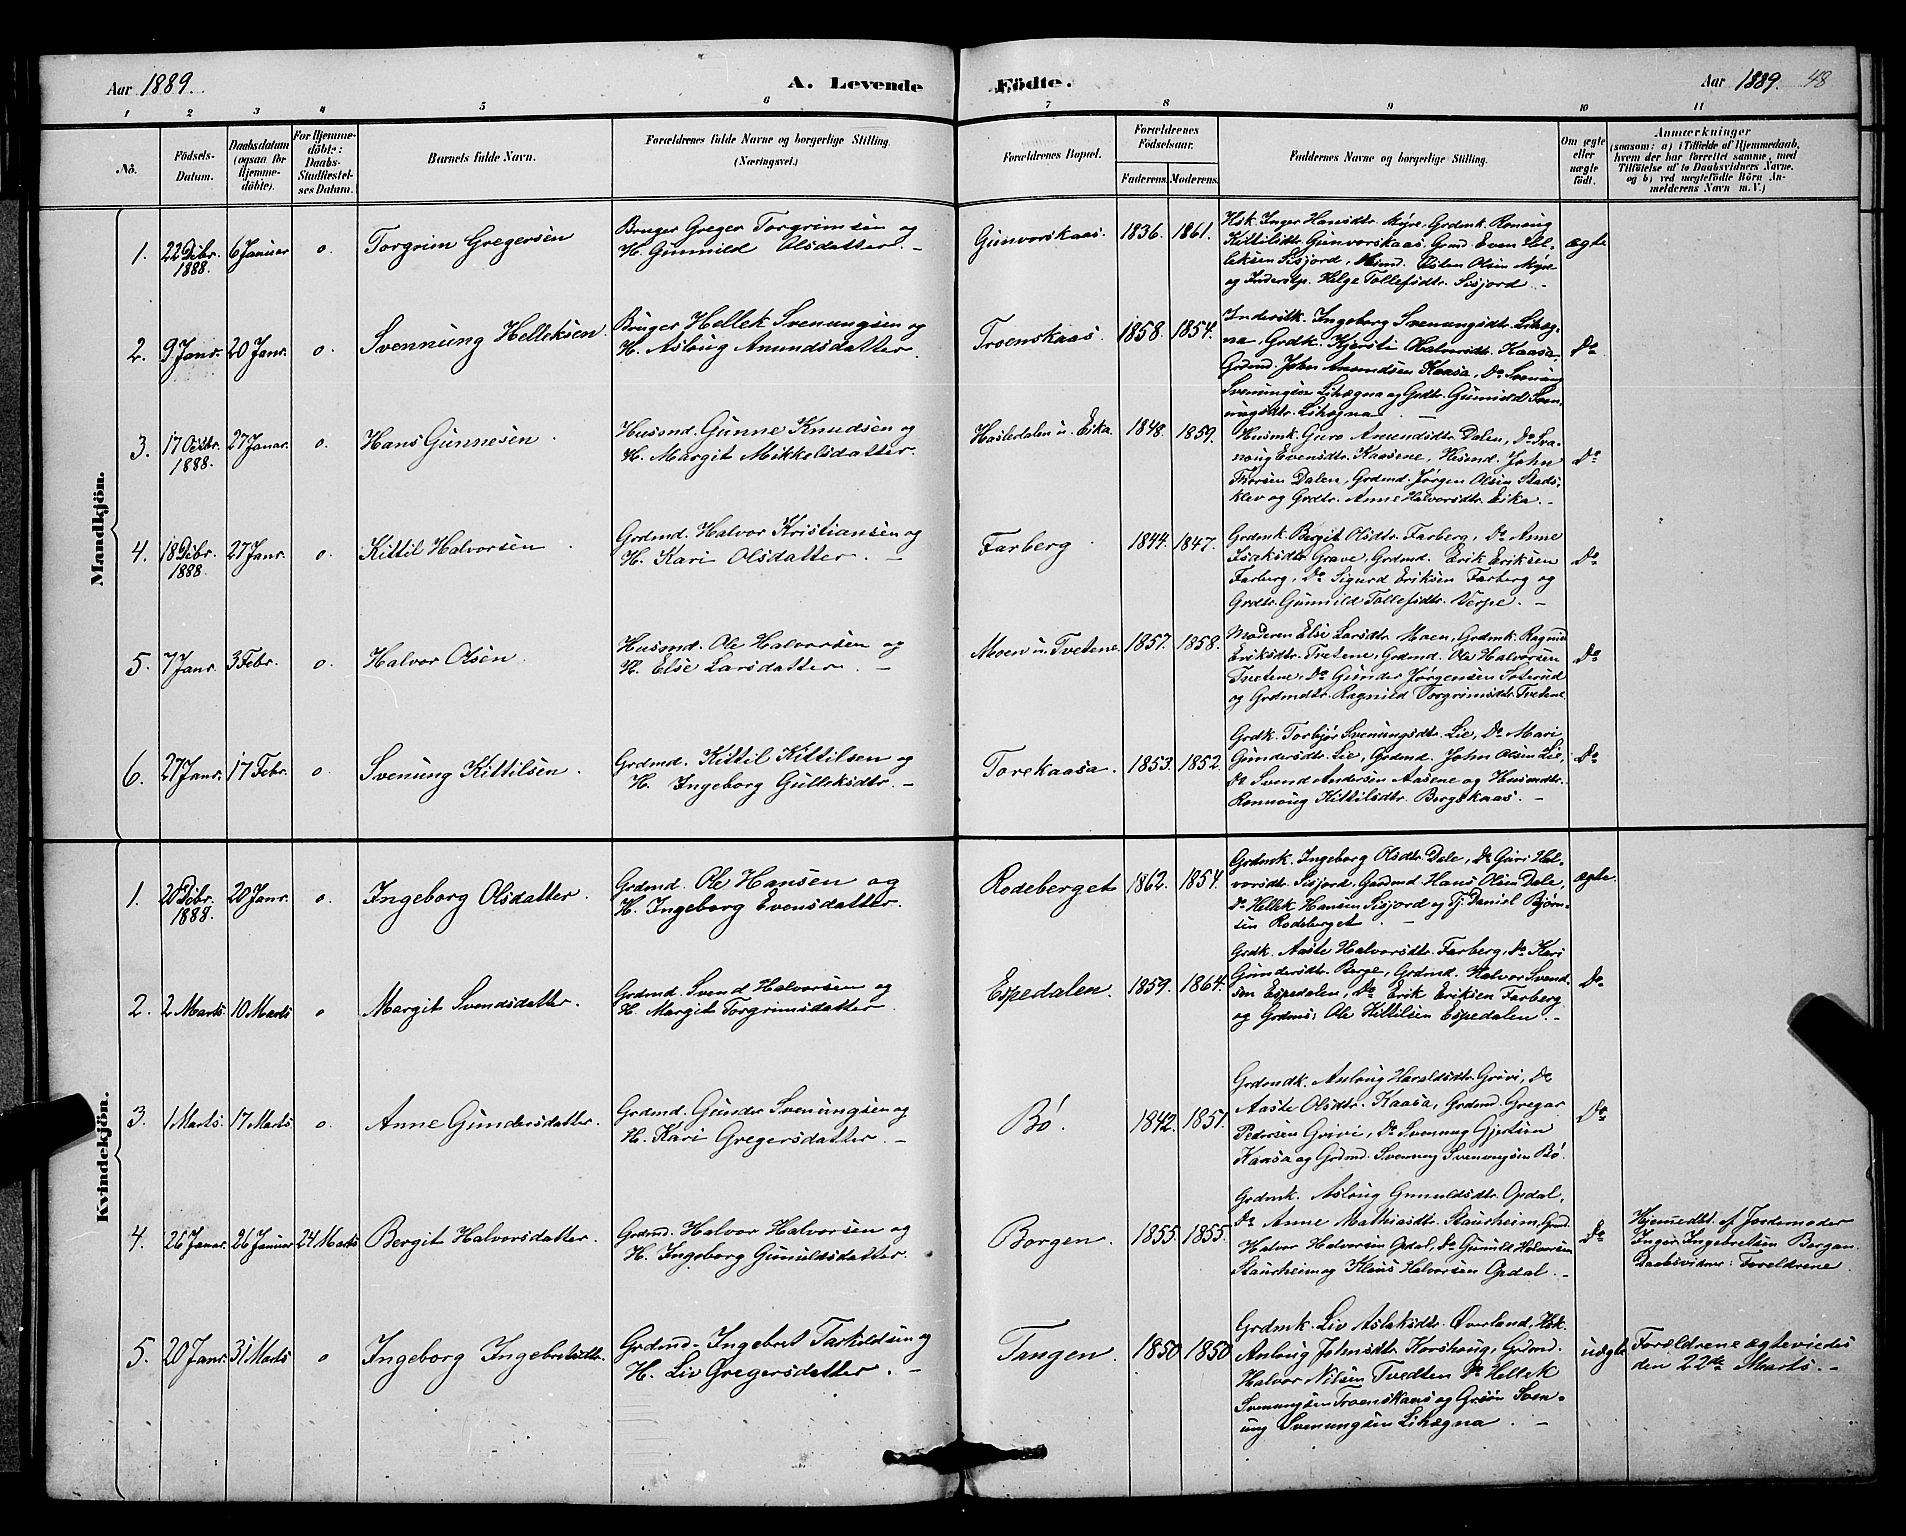 Aar 1889.
A. Levende Födte.
Aar 1889. 48
1 2 3 4 5 6 7 8 9 10 11
No.
Födsels-Datum.
Daabsdatum (ogsaa for Hjemme-döbte).
For Hjemme-döbte: Daabs-Stadfæstel-ses Datum.
Barnets fulde Navn.
Forældrenes fulde Navne og borgerlige Stilling. (Næringsvei.)
Forældrenes Bopæl.
Forældrenes Födselsaar.
Faderens. Moderens.
Faddernes Navne og borgerlige Stilling.
Om ægte eller uægte födt.
Anmærkninger
(saasom: a) i Tilfælde af Hjemmedaab,
hvem der har forrettet samme, med
Tilföielse af to Daabsvidners Navne,
og b) ved uægtefödte Börn An-
melderens Navn m. V.)
Mandkjön.
1. 22 Debr. 1888. 6 Januar o. Torgrim Gregersen
Bruger Greger Torgrimsen og
H. Gunnild Olsdatter. –
Gunvorskaas. 1836. 1861.
Hsk. Inger Hansdtr. Myre, Grdmk. Rønnug
Kittilsdtr. Gunvorskaas, Grmd. Even Hel-
leksen Sisjord, Husmd. Østen Olsen Myre
og Inderstp. Helge Tollefsdtr. Sisjord –
ægte
2. 9 Janr. 20 Janr. o. Svennung Helleksen.
Bruger Hellek Svenungsen og
H. Aslaug Amundsdatter.
Troenskaas. 1858. 1854.
Inderstk. Ingeborg Svenungsdtr. Lihæg-
na, Grdk. Kjersti Halvorsdtr. Kaasa,
Grdmd. John Amundsen Kaasa, Do Svenung
Svenungsen Lihægna og Grdtr. Gunnild Sven-
ungsdtr. Lihægna
Do
3. 17 Octbr. 1888. 27 Janar. o. Hans Gunnesen.
Husmd. Gunne Knudsen og
H. Margit Mikkelsdatter.
Hasledalen u. Eika. 1848. 1859.
Husmk. Guro Amundsdtr. Dalen, Do Sva-
naug Evensdtr. Kaasene, Husmd. John
Thorsen Dalen, Grdmd. Jørgen Olsen Stads-
klev og Grdtr. Anne Halvorsdtr. Eika. –
Do
4. 18 Debr. 1888. 27 Janr. o. Kittil Halvorsen
Grdmd. Halvor Kristiansen og
H. Kari Olsdatter. –
Farberg 1844. 1847.
Grdmk. Bergit Olsdtr. Farberg, Do Anne
Isaksdtr. Grave, Grdmd. Erik Eriksen
Farberg, Do Sigurd Eriksen Farberg og
Grdtr. Gunnild Tollefsdtr. Verpe. –
Do
5. 7 Janr. 3 Febr. o. Halvor Olsen.
Husmd. Ole Halvorsen og
H. Else Larsdatter. –
Moen u. Tvetene. 1857. 1858.
Moderen Else Larsdtr. Moen, Grdmk. Ragnild
Eriksdtr. Tvetene, Grdmd. Ole Halvorsen
Tvetene, Do Gunder Jørgensen Toterud
og Grdmdtr. Ragnild Torgrimsdtr. Tvetene
Do
6. 27 Janr. 17 Febr. o. Svenung Kittilsen.
Grdmd. Kittil Kittilsen og
H. Ingeborg Gulleksdtr. –
Torekaasa. 1853. 1852.
Grdk. Torbjør Svenungsdtr. Lie, Do Mari
Gundersdtr. Lie, Grdmd. John Olsen Lie,
Do Svend Andersen Aasene og Husmdtr.
Rønnoug Kittilsdtr. Bergskaas. –
Do
Kvindekjön.
1. 20 Debr. 1888. 20 Janr. o. Ingeborg Olsdatter.
Grdmd. Ole Hansen og
H. Ingeborg Evensdatter.
Rodeberget 1862. 1854.
Grdmk. Ingeborg Olsdtr. Dale, Do Guri Hal-
vorsdtr. Sisjord, Grdmd Hans Olsen Dale,
Do Hellek Hansen Sisjord og Tj. Daniel Bjørn-
sen Rodeberget –
ægte.
2. 2 Marts. 10 Marts o Margit Svendsdatter.
Grdmd. Svend Halvorsen og
H. Margit Torgrimsdatter
Espedalen. 1859. 1864.
Grdk. Aaste Halvorsdtr. Farberg, Do Kari
Gundersdtr. Berge, Grdmd. Halvor Svend-
sen Espedalen, Do Erik Eriksen Farberg
og Grdms: Ole Kittilsen Espedalen. –
Do
3. 1 Marts. 17 Marts o. Anne Gundersdatter.
Grdmd. Gunder Svenungsen og
H. Kari Gregersdatter. –
Bö. 1842. 1851.
Grdmdk. Anlaug Haraldsdtr. Grivi, Do
Aaste Olsdtr. Kaasa, Grdmd. Gregar
Pedersen Grivi, Do Svenung Gjertsen
Kaasa og Grdmd. Svenung Svenungsen Bö.
Do
4. 26 Janr. 26 Januar 24 Marts Bergit Halvorsdatter.
Grdmd. Halvor Halvorsen og
H. Ingeborg Gunuldsdatter.
Borgen. 1855. 1855.
Grdmk. Aslaug Gunuldsdtr. Opdal,
Do Anne Mathisdtr. Staurheim, Grdmd.
Halvor Halvorsen Opdal, Do Gunuld Halvorsen
Staurheim og Klaus Halvorsen Opdal. –
Do
Hjemmedbt. af Jordemoder
Inger Ingebretsen Borgen.
Daabsvidner: Foreldrene
5. 20 Janr. 31 Marts o Ingeborg Ingebretsdtr.
Grdmd. Ingebret Tarkildsen og
H. Liv Gregersdatter. –
Tangen. 1850. 1850
Grdmk. Liv Aslaksdtr. Øverland, Hsk.
Anlaug Johnsdtr. Korshaug, Grdmd.
Halvor Nilsen Tvedten Do Hellek
Svenungsen Troenskaas og Grsön Sven-
ung Svenungsen Lihægna. –
uægte
Foreldrene ægteviedes
den 22de Marts. –